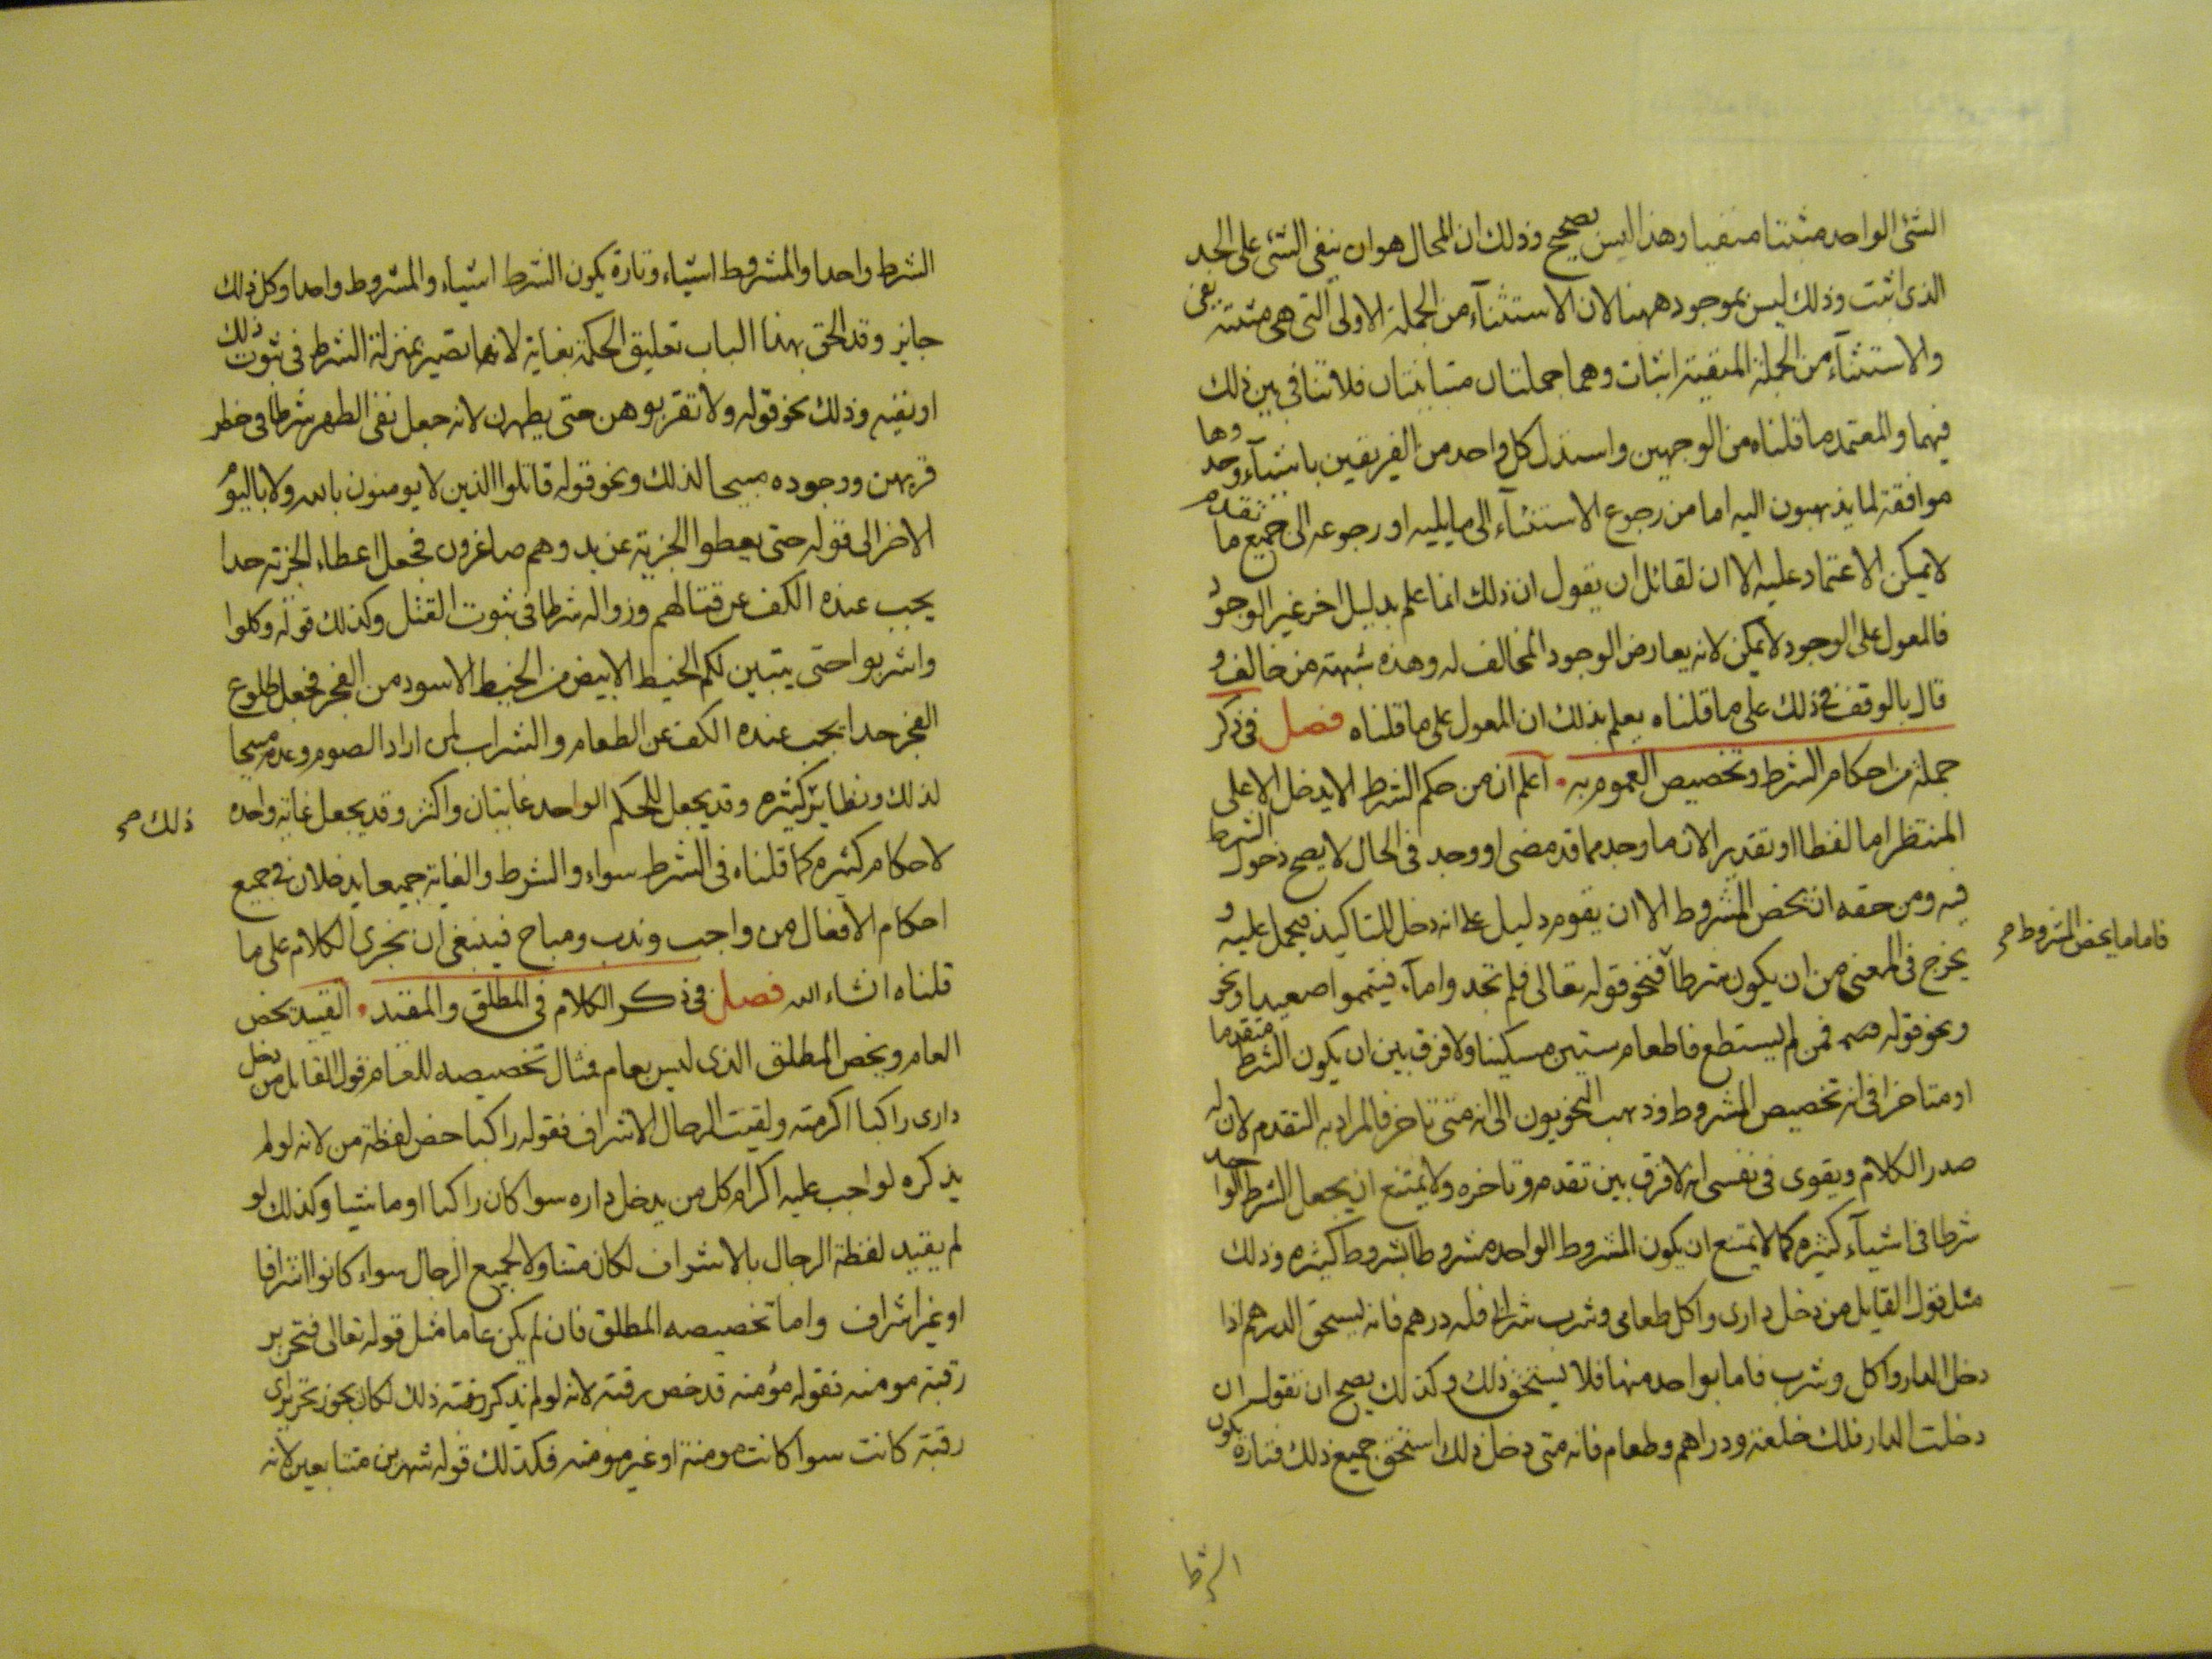 الشئ الواحد مثبتا منفيا وهذا ليس بصحيح وذلك ان المحال هو ان ينفى الشئ على الحد
الذى اثبت وذلك ليس بموجود ههنا لان الاستثناء من الجملة الاولى التى هى مثبتة نفى
والاستثناء من الجملة المنفية اثبات وهما جملتان متباينتان فلا تنافى بين ذلك
فيهما والمعتمد ما قلناه من الوجهين واستدل كل واحد من الفريقين باشياء وجدوها
موافقة لما يذهبون اليه اما من رجوع الاستثناء الى ما يليه او رجوعه الى جميع ما تقدم
لا يمكن الاعتماد عليه الا ان لقائل ان يقول ان ذلك انما علم بدليل اخر غير الوجود
فالمعول على الوجود لا يمكن لانه يعارض الوجود المخالف له وهذه شبهة من خالف و
قال بالوقف فى ذلك على ما قلناه يعلم بذلك ان المعول على ما قلناه فصل فى ذكر
جملة من احكام الشرط وتخصيص العموم به اعلم ان من حكم الشرط الا يدخل الا على
المنتظر اما لفظا او تقديرا لان ما وجد مما قد مضى او وجد فى الحال لا يصح دخول الشرط
فيه ومن حقه ان يخص المشروط الا ان يقوم دليل على انه دخل للتاكيد فيحمل عليه و
يخرج فى المعنى من ان يكون شرطا فنحو قوله تعالى فلم تجدوا ماء فتيمموا صعيدا ونحو
فاما ما يخص المشروط صح
ونحو قوله فمن لم يستطع فاطعام ستين مسكينا ولا فرق بين ان يكون الشرط متقدما
او متاخرا فى انه تخصيص المشروط وذهب النحويون الى انه متى تاخر فالمراد به التقدم لان له
صدر الكلام ويقوى فى نفسى انه لا فرق بين تقدمه وتاخره ولا يمتنع ان يجعل الشرط الواحد
شرطا فى اشياء كثيرة كما لا يمتنع ان يكون المشروط الواحد مشروطا بشروط كثيرة وذلك
مثل قول القايل من دخل دارى واكل طعامى وشرب شرابى فله درهم فانه يستحق الدرهم اذا
دخل الدار واكل وشرب فاما بواحد منها فلا يستحق ذلك وكذلك يصح ان تقول ان
دخلت الدار فلك خلعة ودراهم وطعام فانه متى دخل ذلك استحق جميع ذلك فتارة يكون
الشرط
الشرط واحدا والمشروط اشياء وتارة يكون الشرط اشياء والمشروط واحدا وكل ذلك
جايز وقد الحق بهذا الباب تعليق الحكمة بغاية لانها تصير بمنزلة الشرط فى ثبوت ذلك
او نفيه وذلك نحو قوله ولا تقربوهن حتى يطهرن لانه جعل نفى الطهر شرطا فى خطر
قربهن ووجوده مبيحا لذلك ونحو قوله قاتلوا الذين لا يومنون بالله ولا باليوم
الاخر الى قوله حتى يعطوا الجزية عن يد وهم صاغرون فجعل اعطاء الجزية حدا
يجب عنده الكف عن قتالهم وزواله شرطا فى ثبوت القتل وكذلك قوله وكلوا
واشربوا حتى يتبين لكم الخيط الابيض من الخيط الاسود من الفجر فجعل طلوع
الفجر حدا يجب عنده الكف عن الطعام والشراب لمن اراد الصوم وعدمه مبيحا
لذلك ونظاير كثيرة وقد يجعل للحكم الواحد غايتان واكثر وقد يجعل غاية واحدة
ذلك صح
لاحكام كثيرة كما قلناه فى الشرط سواء والشرط والغاية جميعا يدخلان فى جميع
احكام الافعال من واجب وندب ومباح فينبغى ان نجرى الكلام على ما
قلناه انشاء الله فصل فى ذكر الكلام فى المطلق والمقيد القييد يخص
العام ويخص المطلق الذى ليس بعام فمثال تخصيصه للعام قول القايل من دخل
دارى راكبا اكرمته ولقيت الرجال الاشراف فقوله راكبا خص لفظة من لانه لو لم
يذكره لواجب عليه اكرام كل من يدخل داره سوا كان راكبا او ماشيا وكذلك لو
لم يقيد لفظة الرجال بالاشراف لكان متناولا لجميع الرجال سواء كانوا اشرافا
او غير اشراف واما تخصيصه المطلق فان لم يكن عاما مثل قوله تعالى فتحرير
رقبة مومنه فقوله مؤمنه قد خص رقبة لانه لو لم يذكر رقبة ذلك لكان يجوز تحرير اى
رقبة كانت سوا كانت مومنة او غير مومنه فكذلك قوله شهرين متتابعين لانه